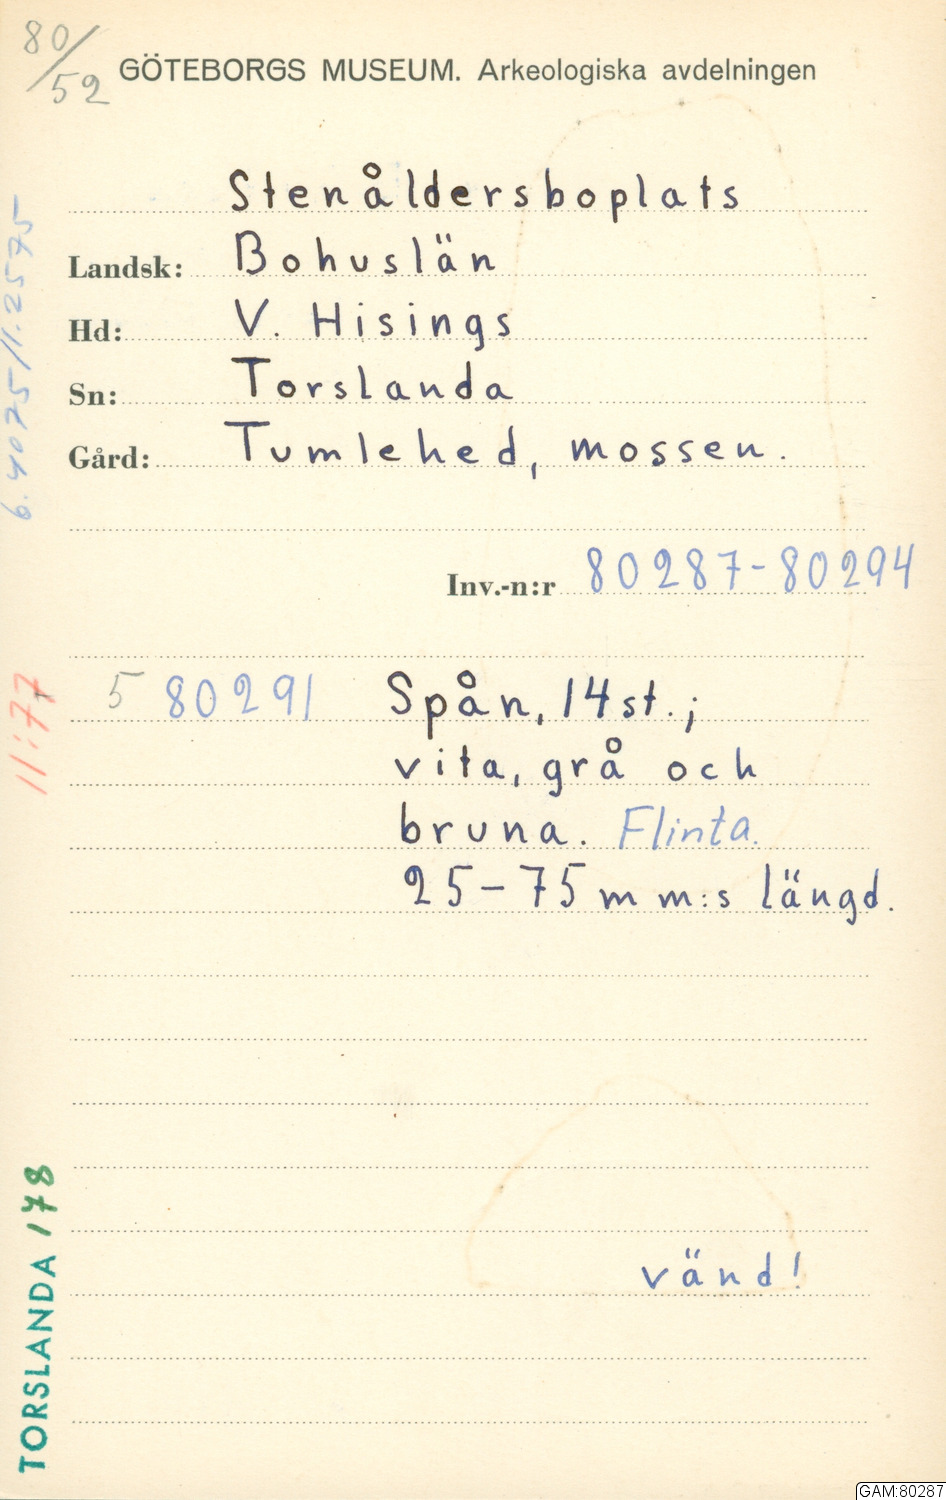 80/52
GÖTEBORGS MUSEUM. Arkeologiska avdelningen
Stenåldersboplats
Landsk: Bohuslän
Hd: V. Hisings
Sn: Torslanda
Gård: Tumlehed, mossen.
Inv.-n:r 80287-80294
5 80291 Spån, 14 st.;
vita, grå och
bruna. Flinta.
25-75 mm:s längd.
vänd!
6.4075/1.2575
11:77
TORSLANDA 178
GAM:80287